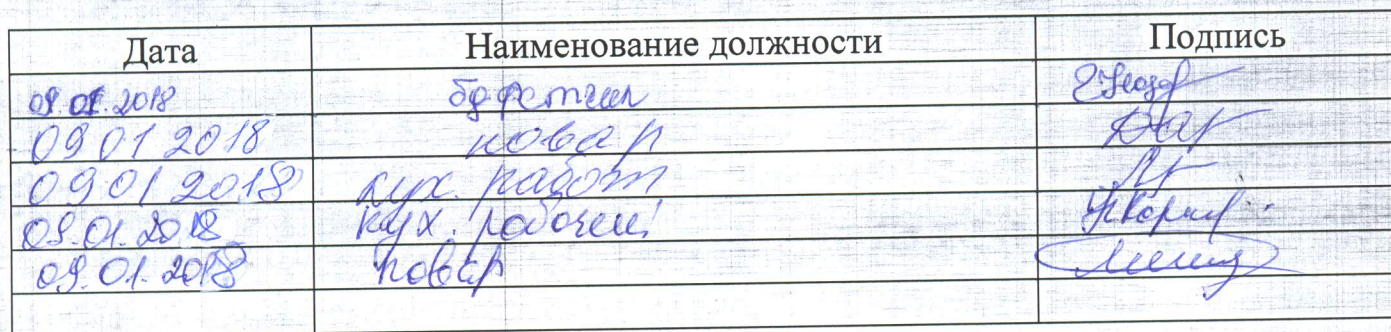 Дата Наименование должности Подпись
09.01.2018 буфетчик
09 01 2018 повар
09 01 2018 кух. работ
09.01.2018 кух. рабочий
09.01.2018 повар